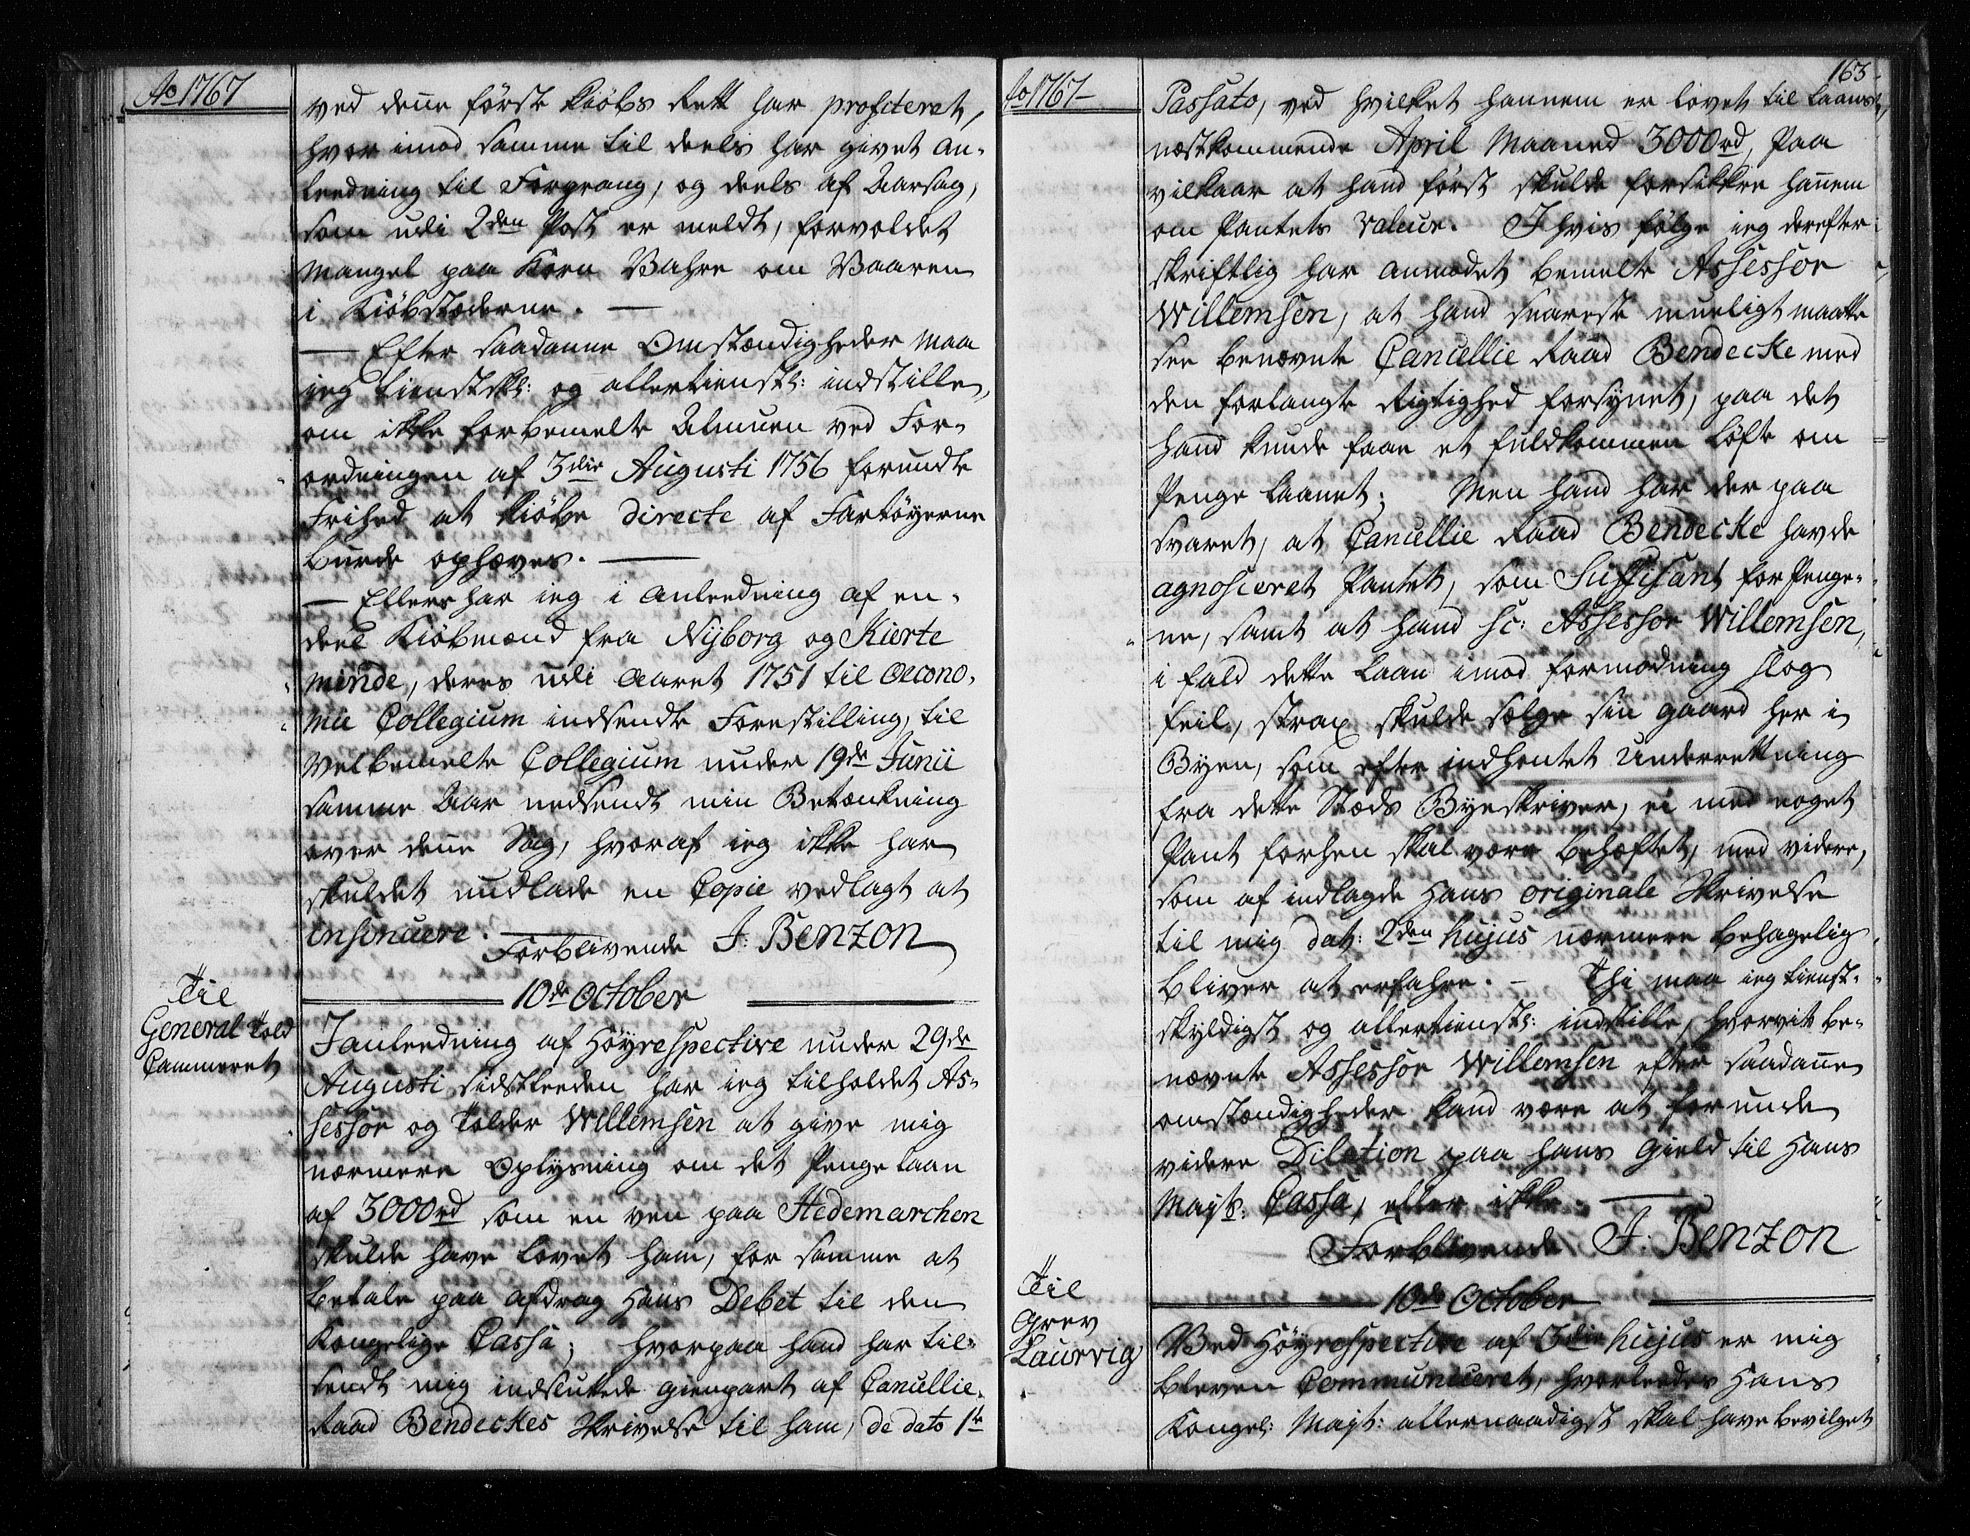 Ao 1767
ved denne første Kiøbs Rett har profiteret,
hvor imod samme til deels har givet an-
leedning til Forprang, og deels af Aarsag,
som udi 2den Post er meldt, forvoldet
Mangel paa Korn Vahre om Vaaren
i Kiøbstæderne. —
— Efter saadanne Omstændigheder maa
ieg tienstskl: og allertienstl: indstille,
om ikke forbemelte Almuen ved For-
ordningen af 3die Augusti 1756 forundte
Frihed at Kiøbe directe af Fartøyerne
burde ophæves. —
— Ellers har ieg i Anleedning af en-
deel Kiøbmænd fra Nyborg og Kierte
minde, deres udi Aaret 1751 til Oecono-
mie Collegium indsendte Forestilling, til
Velbemelte Collegium under 19de Junii
samme Aar nedsendt min Betænkning
over denne Sag, hvoraf ieg ikke har
skuldet undlade en Copie vedlagt at
insinuere. —
Forblivende J. Benzon
10de October
Til
General Told
Cammeret
I anleedning af Høyrespective under 29de
Augusti sidstleeden har ieg tilholdet As-
sessor og Tolder Willemsen at give mig
nærmere Oplysning om det Penge Laan
af 3000rd som en ven paa Hedemarchen
skulde have lovet ham, for samme at
betale paa afdrag Hans Debet til den
Kongelige Cassa; hvorpaa hand har til-
sendt mig indsluttede gienpart af Cancellie-
Raad Bendeckes Skrivelse til ham, de dato 1te
163
Ao 1767
Passato, ved hvilket hannem er lovet til Laans
næstkommende April Maaned 3000rd, Paa
vilkaar at hand først skulde forsikkre hannem
om Pantets Valeur. I hvis følge ieg derefter
skriftlig har anmodet bemelte Assessor
Willemsen, at hand snareste mueligt maatte
see benævnte Cancellie Raad Bendecke med
den forlangte Rigtighed forsynet, paa det
hand kunde faae et fuldkommen Løfte om
Penge Laanet; Men hand har der paa
svaret, at Cancellie Raad Bendecke havde
agnosceret Pantet, som Suffisant for Penge-
ne, samt at hand sc: Assessor Willemsen,
i fald dette Laan imod formodning slog
feil, strax skulde sælge sin gaard her i
Byen, som efter indhentet Underrettning
fra dette Stæds Byeskriver, ei med noget
Pant forhen skal være behæftet, med videre,
som af indlagde Hans originale Skrivelse
til mig dat: 2den hujus nærmere behagelig
bliver at erfahre. — Thi maa ieg tienst-
skyldigst og allertienstl: indstille, hvorvit be-
nævnte Assessor Willemsen efter saadanne
omstændigheder kand være at forunde
videre Dilation paa hans Gield til Hans
Majts: Cassa, eller ikke. —
Forblivende J. Benzon
10de October
Til
Grev
Laurvig
Ved Høyrespective af 3die hujus er mig
bleven Communiceret, hvorleedes Hans
Kongel: Majt: allernaadigst skal have bevilget